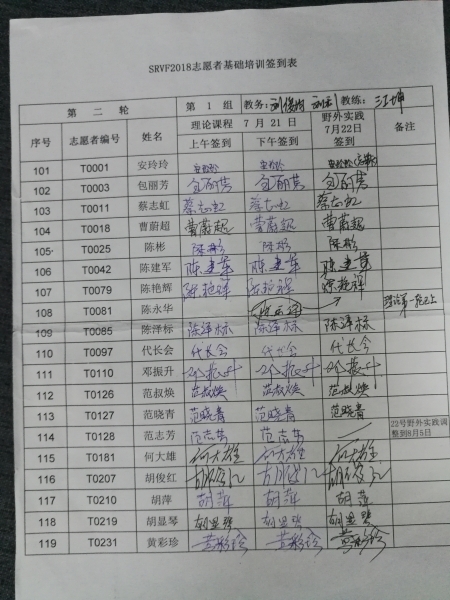 SRVF2018志愿者基础培训签到表
第 二 轮 第 1 组 教务: 教练: 江坤
序号 志愿者编号 姓名 理论课程 7 月 21 日 野外实践 7月22日 签到 备注
上午签到 下午签到
101 T0001 安玲玲 安玲玲 安玲玲 安玲玲
102 T0003 包丽芳 包丽芳 包丽芳 包丽芳
103 T0011 蔡志虹 蔡志虹 蔡志虹 蔡志虹
104 T0018 曹蔚超 曹蔚超 曹蔚超 曹蔚超
105 T0025 陈彬 陈彬 陈彬 陈彬
106 T0042 陈建军 陈建军 陈建军 陈建军
107 T0079 陈艳辉 陈艳辉 陈艳辉 陈艳辉
108 T0081 陈永华
109 T0085 陈泽标 陈泽标 陈泽标 陈泽标
110 T0097 代长会 代长会 代长会 代长会
111 T0110 邓振升 邓振升 邓振升 邓振升
112 T0126 范叔焕 范叔焕 范叔焕 范叔焕
113 T0127 范晓青 范晓青 范晓青 范晓青
114 T0128 范志芳 范志芳 范志芳 22号野外实践调
整到8月5日
115 T0181 何大雄 何大雄 何大雄 何大雄
116 T0207 胡俊红 胡俊红 胡俊红 胡俊红
117 T0210 胡萍 胡萍 胡萍 胡萍
118 T0219 胡显琴 胡显琴 胡显琴 胡显琴
119 T0231 黄彩珍 黄彩珍 黄彩珍 黄彩珍